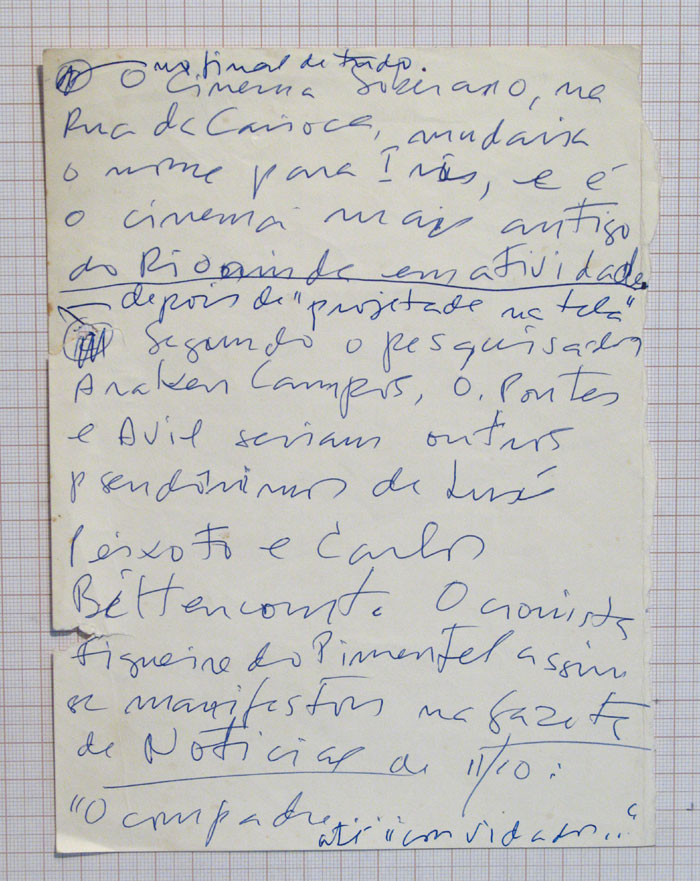 no final de tudo.
O Cinema Soberano, na
Rua da Carioca, mudaria
o nome para Íris, e é
o cinema mais antigo
do Rio ainda em atividade.
depois de "projetade na tela"
Segundo o pesquisador
Araken Campos, O. Pontes
e Avil seriam outros
pseudônimos de Luiz
Peixoto e Carlos
Bettencourt. O cronista
Figueiredo Pimentel assim
se manifestou na Gazeta
de Notícias de 11/10:
"O compadre... até "convidados..."